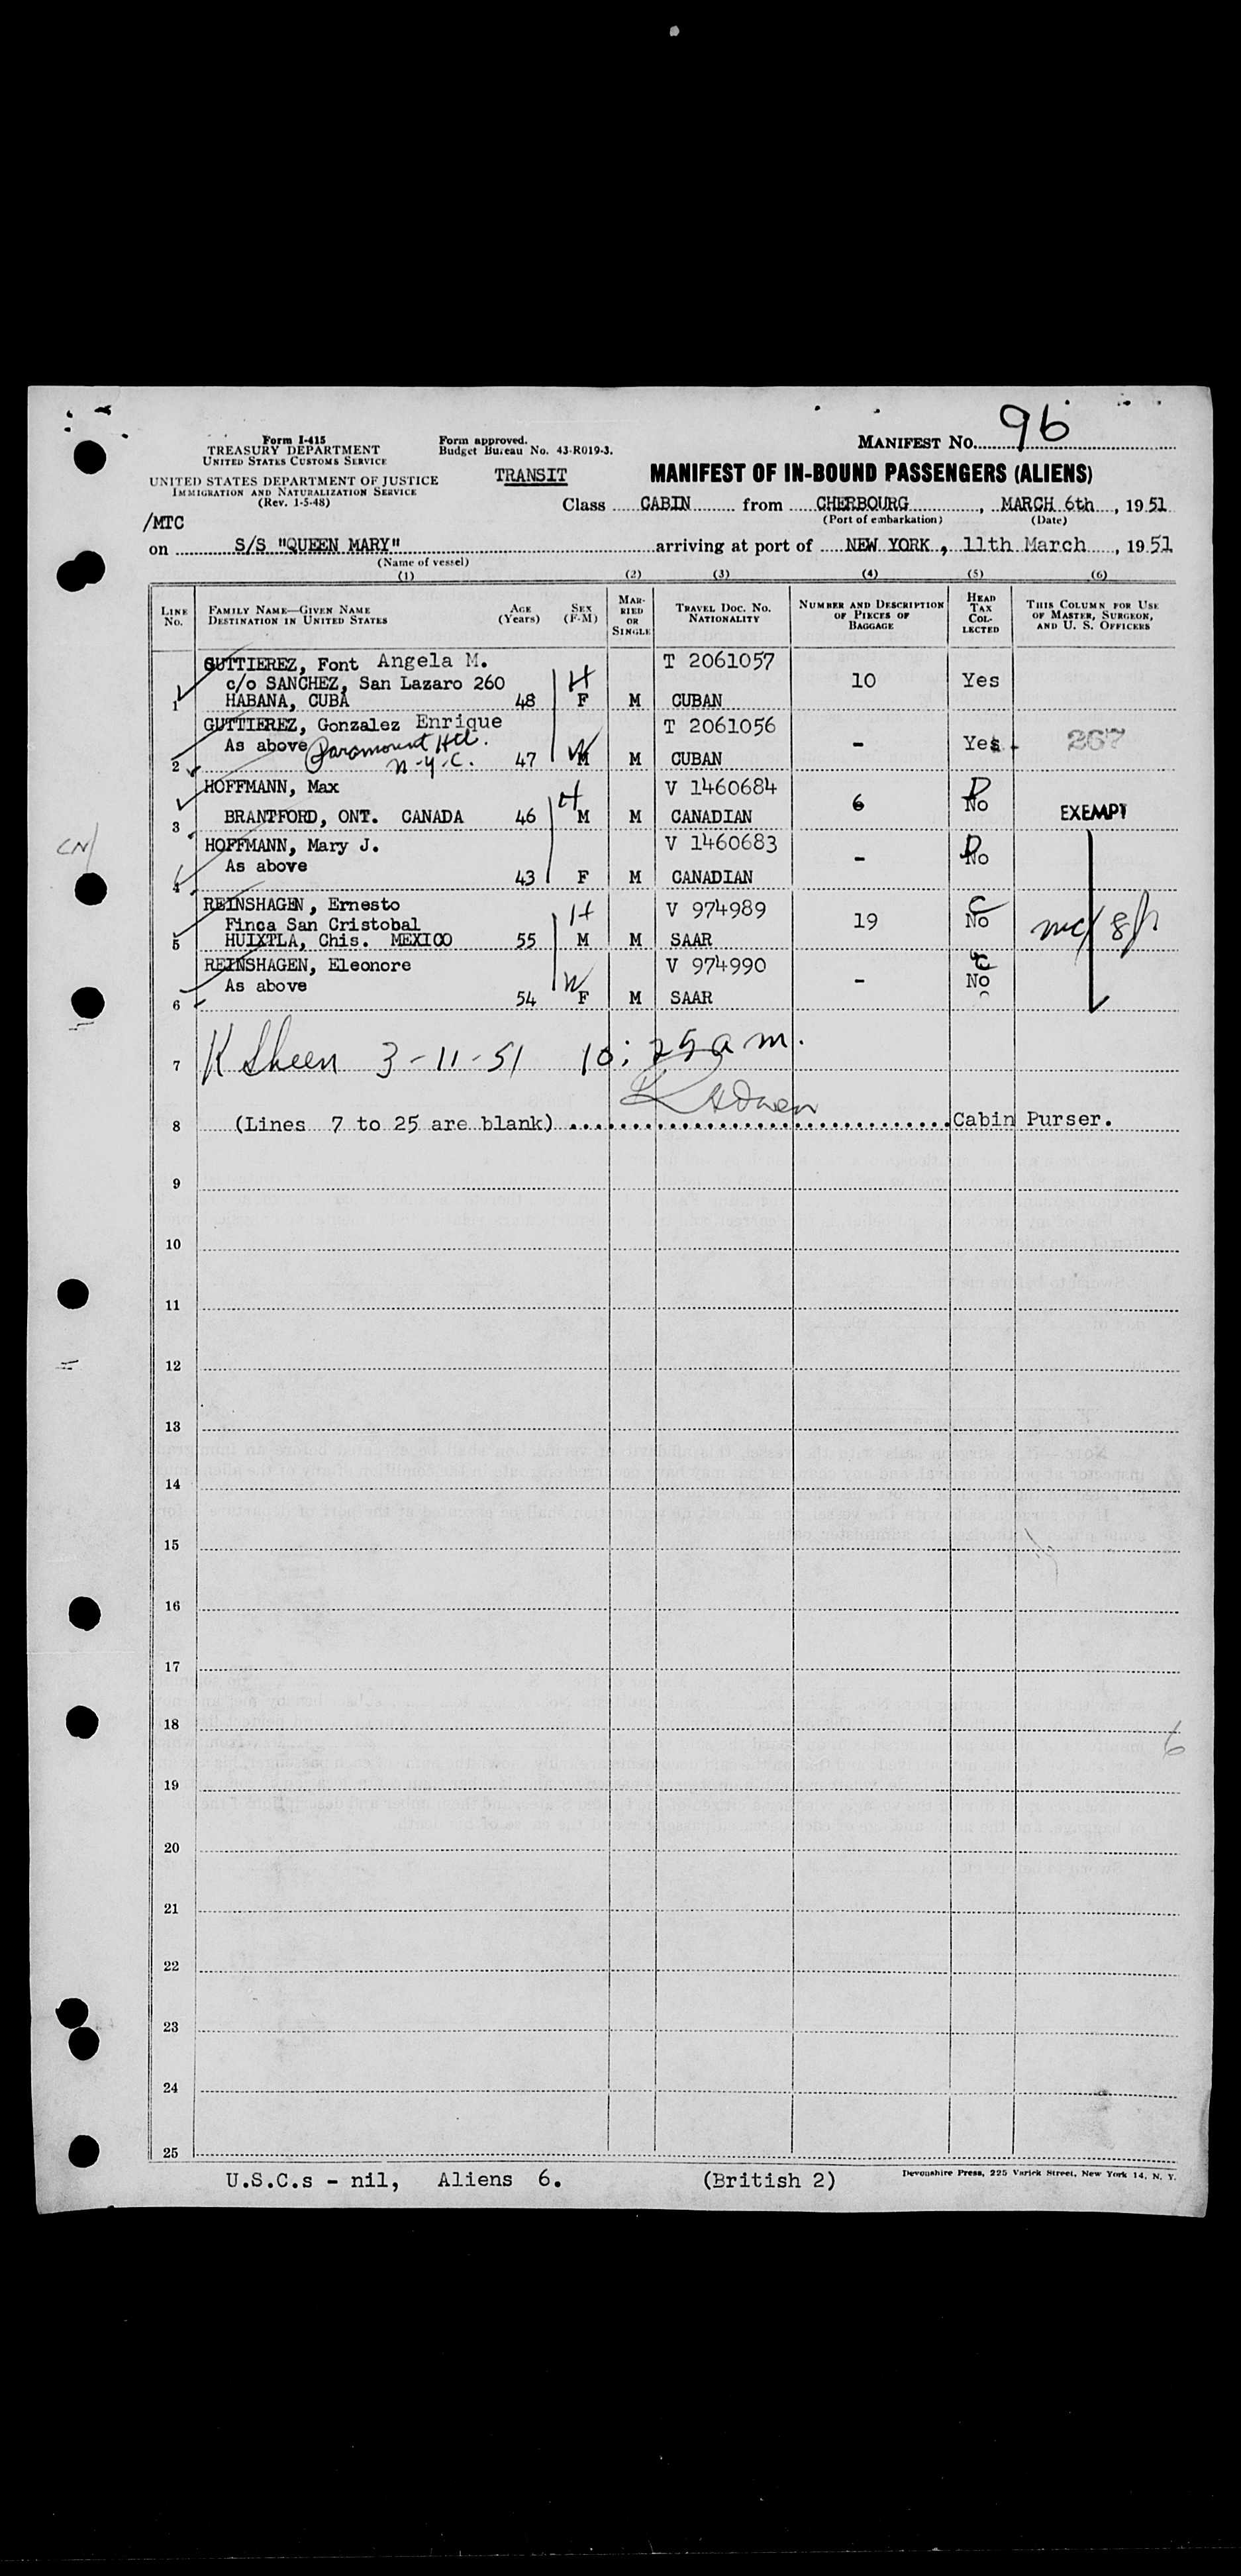 96
Form I-415
TREASURY DEPARTMENT
UNITED STATES CUSTOMS SERVICE
Form approved.
Budget Bureau No. 43-R019-3.
MANIFEST No.
UNITED STATES DEPARTMENT OF JUSTICE
IMMIGRATION AND NATURALIZATION SERVICE
(Rev. 1-5-48)
TRANSIT
MANIFEST OF IN-BOUND PASSENGERS (ALIENS)
Class CABIN from CHERBOURG, MARCH 6th, 1951
(Port of embarkation) (Date)
/MTC
on S/S "QUEEN MARY" arriving at port of NEW YORK, 11th March, 1951
(Name of vessel)
(1) (2) (3) (4) (5) (6)
LINE No. FAMILY NAME—GIVEN NAME DESTINATION IN UNITED STATES AGE (Years) SEX (F-M) MARRIED OR SINGLE TRAVEL DOC. No. NATIONALITY NUMBER AND DESCRIPTION OF PIECES OF BAGGAGE HEAD TAX COLLECTED THIS COLUMN FOR USE OF MASTER, SURGEON, AND U. S. OFFICERS
GUTTIEREZ, Font Angela M. T 2061057
c/o SANCHEZ, San Lazaro 260 H 10 Yes
1 HABANA, CUBA 48 F M CUBAN
GUTTIEREZ, Gonzalez Enrique T 2061056
As above Paramount Htl. - Yes - 267
2 N.Y.C. 47 W M M CUBAN
HOFFMANN, Max V 1460684
H 6 D No EXEMPT
3 BRANTFORD, ONT. CANADA 46 M M CANADIAN
CN/
HOFFMANN, Mary J. V 1460683
As above - D No
4 43 F M CANADIAN
REINSHAGEN, Ernesto V 974989
Finca San Cristobal H 19 C No
5 HUIXTLA, Chis. MEXICO 55 M M SAAR
REINSHAGEN, Eleonore V 974990
As above W - C No
6 54 F M SAAR
7 K Sheen 3-11-51 10:25 a m.
8 (Lines 7 to 25 are blank) Cabin Purser.
9
10
11
12
13
14
15
16
17
18
6
19
20
21
22
23
24
25
U.S.C.s - nil, Aliens 6. (British 2)
Devonshire Press, 225 Varick Street, New York 14, N. Y.